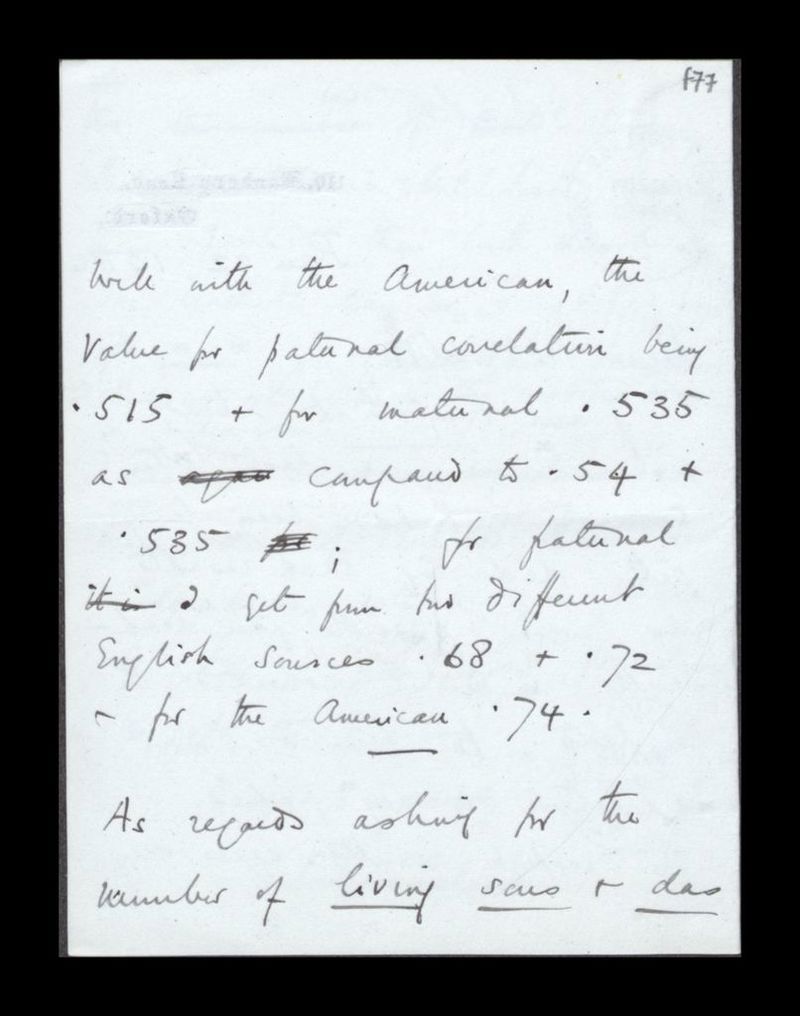 f77
well with the American, the
Value for paternal correlation being
·515 + for maternal ·535
as compared to ·54 +
·535 ; for fraternal
it is I get from two different
English sources ·68 + ·72
+ for the American ·74.
As regards asking for the
number of living sons + das